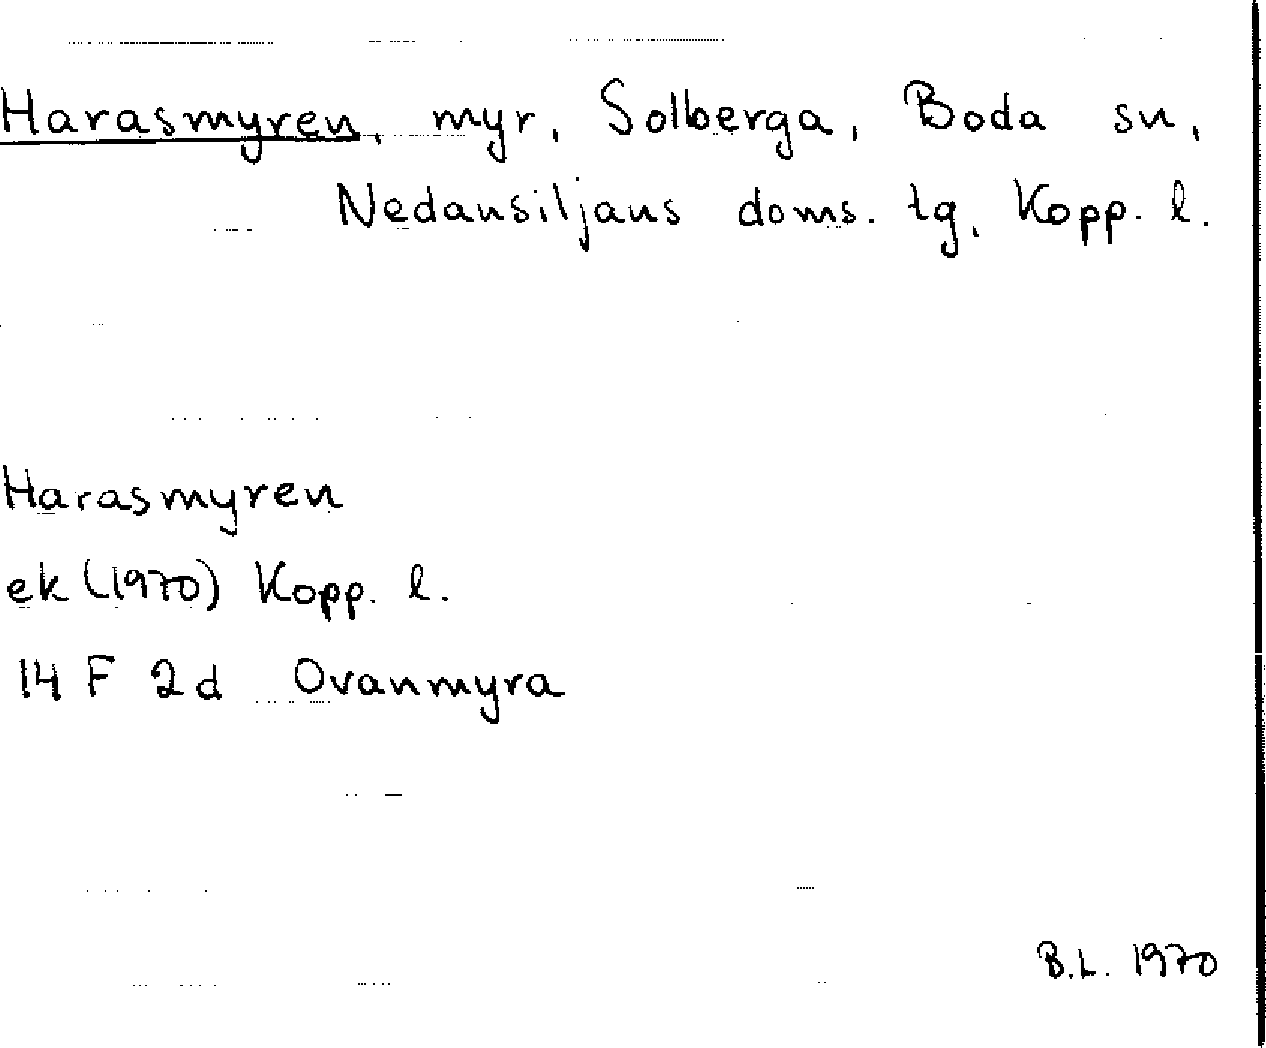 Harasmyren, myr, Solberga, Boda sn,
Nedansiljans doms. tg, Kopp. l.
Harasmyren
ek (1970) Kopp. l.
14 F 2d Ovanmyra
B.L. 1970